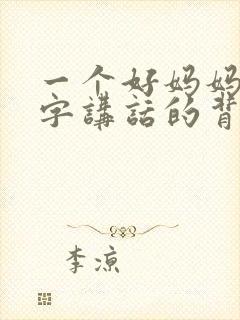 一个好妈妈
字講話的背
李凉